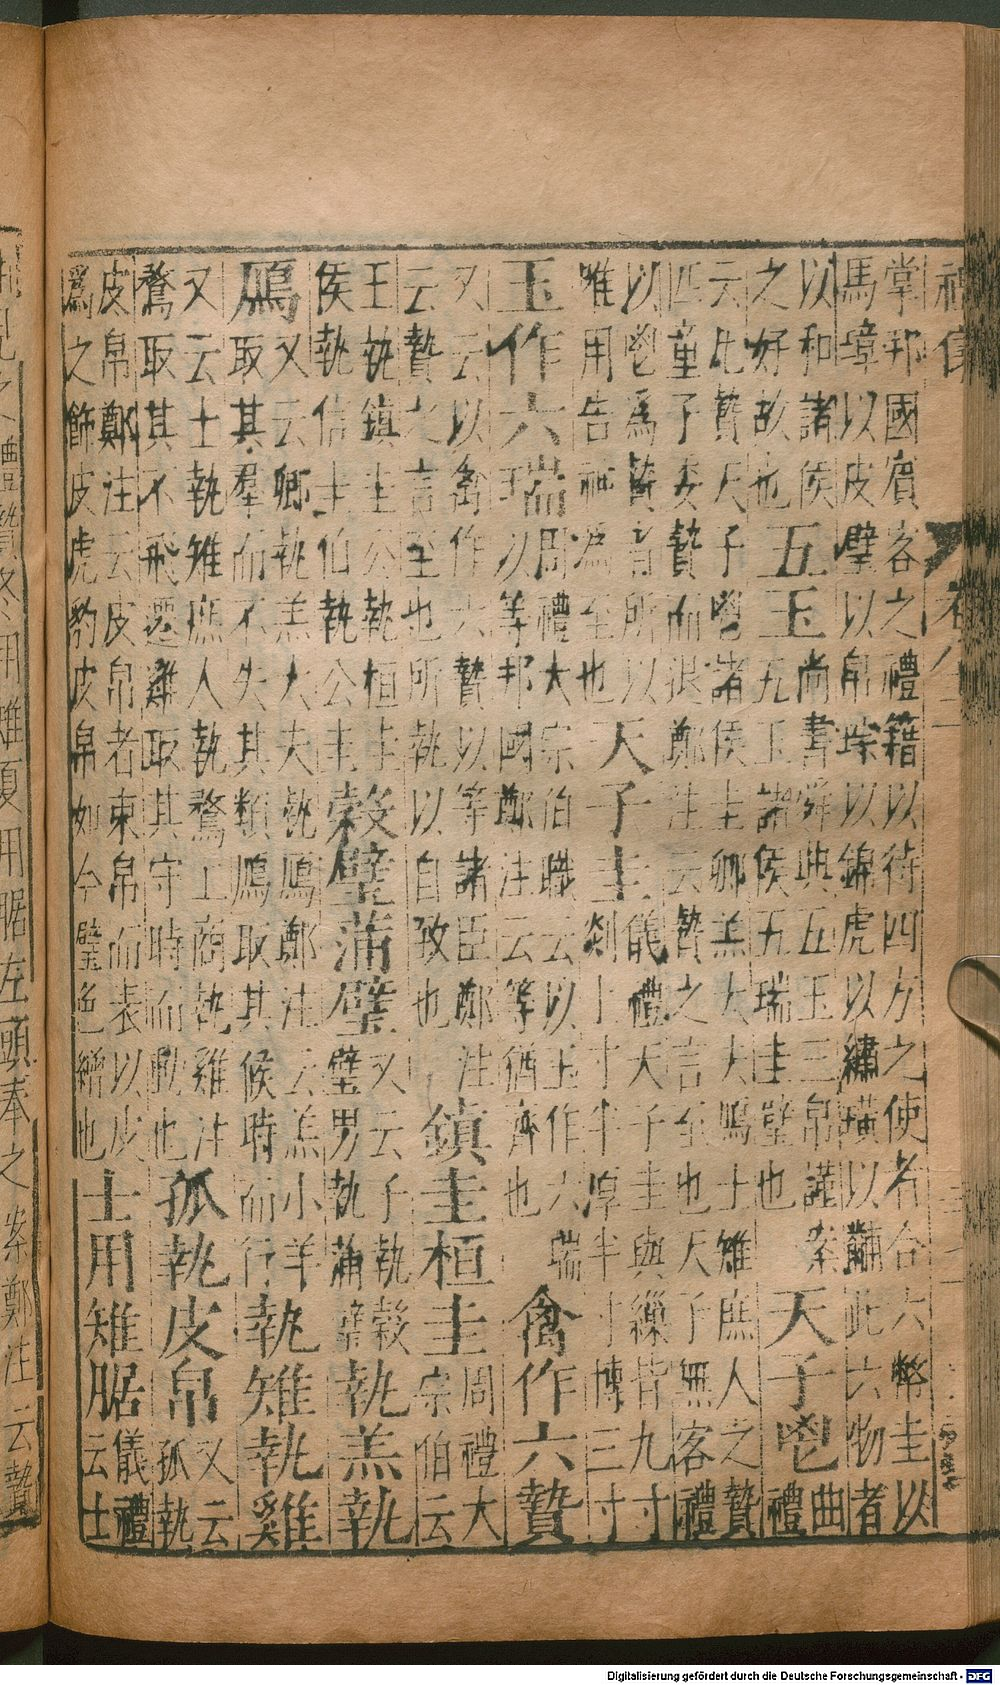 掌邦國賓客之禮籍以待四方之使者合六幣圭以
馬璋以皮璧以帛琮以錦虎以繡璜以黼此六物者
以和諸侯
之好故也
五玉
尚書舜典五玉三帛謹案
五玉諸侯五瑞圭璧也
天子鬯
曲
禮
云凡贄天子鬯諸侯圭卿羔大大鴈士雉庶人之贄
匹童子委贄而退鄭注云贄之言至也天子無客禮
以鬯爲贄者所以
唯用告神爲至也
天子圭
儀禮天子圭與繅皆九寸
剡上寸半厚半寸博三寸
玉作六瑞
周禮大宗伯職云以玉作六瑞
以等邦國鄭注云等猶齊也
禽作六贄
又云以禽作六贄以等諸臣鄭注
云贄之言至也所執以自致也
鎮圭桓圭
周禮大
宗伯云
王執鎮圭公執桓圭
侯執信圭伯執公圭
榖璧蒲璧
又云子執榖
璧男執蒲璧
執羔執
鴈
又云卿執羔大夫執鴈鄭注云羔小羊
取其羣而不失其類鴈取其候時而行
執雉執雞
又云士執雉庶人執鶩工商執雞注
鶩取其不飛遷雞取其守時而動也
孤執皮帛
又云
孤執
皮帛鄭注云皮帛者束帛而表以皮
爲之飾皮虎豹皮帛如今璧色繒也
士用雉腒
儀禮
云士
相見之禮贄冬用雉夏用腒左頭奉之案鄭注云贄
Digitalisierung gefördert durch die Deutsche Forschungsgemeinschaft - DFG